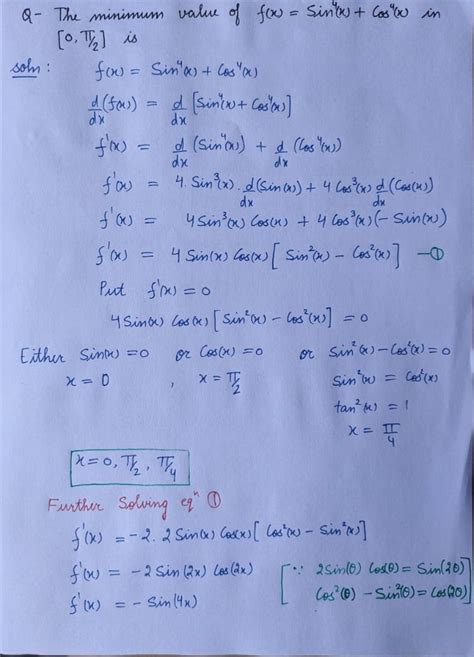 Q- The minimum value of f(x) = Sin⁴(x) + Cos⁴(x) in
[0, π/2] is
soln : f(x) = Sin⁴(x) + Cos⁴(x)
d/dx (f(x)) = d/dx [Sin⁴(x) + Cos⁴(x)]
f'(x) = d/dx (Sin⁴(x)) + d/dx (Cos⁴(x))
f'(x) = 4. Sin³(x). d/dx (Sin(x)) + 4 Cos³(x) d/dx (Cos(x))
f'(x) = 4 Sin³(x) Cos(x) + 4 Cos³(x) (- Sin(x))
f'(x) = 4 Sin(x) Cos(x) [ Sin²(x) - Cos²(x) ] — ①
Put f'(x) = 0
4 Sin(x) Cos(x) [ Sin²(x) - Cos²(x) ] = 0
Either Sin(x) = 0 or Cos(x) = 0 or Sin²(x) - Cos²(x) = 0
x = 0 , x = π/2 Sin²(x) = Cos²(x)
tan²(x) = 1
x = π/4
x = 0, π/2, π/4
Further Solving eqⁿ ①
f'(x) = -2. 2 Sin(x) Cos(x) [ Cos²(x) - Sin²(x) ]
f'(x) = -2 Sin(2x) Cos(2x) [ ∵ 2Sin(θ) Cos(θ) = Sin(2θ)
f'(x) = - Sin(4x) Cos²(θ) - Sin²(θ) = Cos(2θ) ]